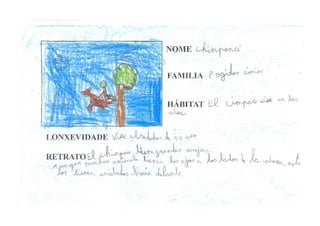 NOME chimpancé
FAMILIA Pogidos simios
HÁBITAT El chimpacé vive en las
selvas
LONXEVIDADE Vive alrededor de 50 años
RETRATO El chimpance tiene grandes orejas.
Aunque muchos animales tienen los ojos a los lados de la cabeza, este
los tienen situados hacia delante.